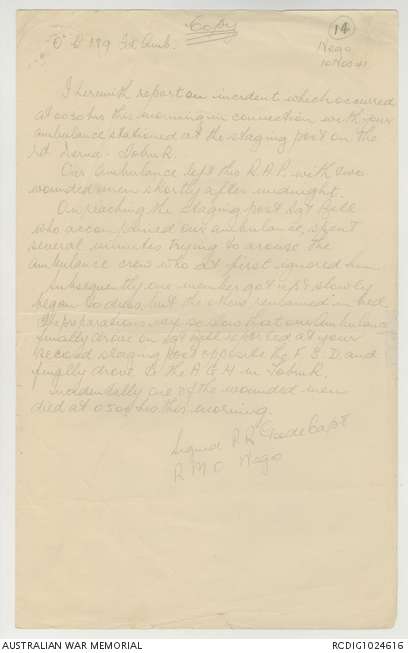 Copy
14
O C 2/9 Fd Amb.
Nego
10 Nov 41
I herewith report on incident which occurred
at 0030 hrs this morning in connection with your
ambulance stationed at the staging post on the
rd Derna - Tobruk.
Our ambulance left this R.A.P. with two
wounded men shortly after midnight.
On reaching the staging post Sgt Bell
who accompanied our ambulance, spent
several minutes trying to arouse the
ambulance crew who at first ignored him
Subsequently one member got up & slowly
began to dress but the others remained in bed.
Preparations were so slow that our Ambulance
finally drove on Sgt Bell reported at your
second staging Post opposite the F.S.D. and
finally drove to the A G H in Tobruk.
Incidentally one of the wounded men
died at 0500 hrs this morning.
Signed R R Goode Capt
R M O Nego
AUSTRALIAN WAR MEMORIAL
RCDIG1024616